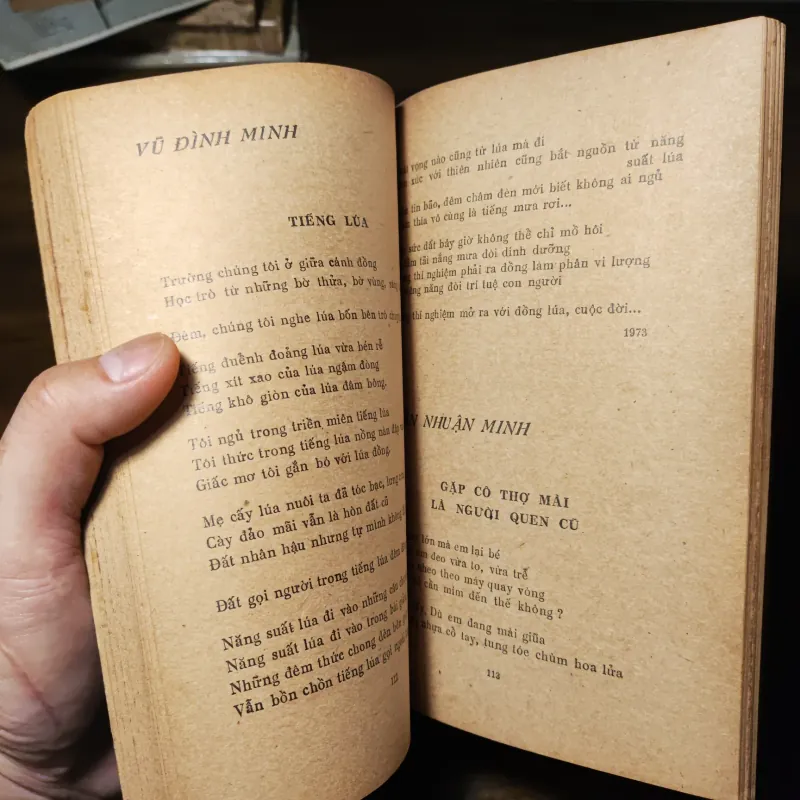 VŨ ĐÌNH MINH
TIẾNG LÚA
Trường chúng tôi ở giữa cánh đồng
Học trò từ những bờ thửa, bờ vùng,
Đêm, chúng tôi nghe lúa bốn bên trò
Tiếng đuềnh đoảng lúa vừa bén rễ
Tiếng xít xao của lúa ngậm đòng
Tiếng khô giòn của lúa đâm bông.
Tôi ngủ trong triền miên tiếng lúa
Tôi thức trong tiếng lúa nồng nàn
Giấc mơ tôi gắn bó với lúa đồng.
Mẹ cấy lúa nuôi ta đã tóc bạc, lưng
Cày đảo mãi vẫn là hòn đất cũ
Đất nhân hậu nhưng tự mình không
Đất gọi người trong tiếng lúa đêm
Năng suất lúa đi vào những câu
Năng suất lúa đi vào trong bài
Những đêm thức chong đèn bên
Vẫn bồn chồn tiếng lúa gọi
112
vọng nào cũng từ lúa mà đi
xúc với thiên nhiên cũng bắt nguồn từ năng
suất lúa
tin bão, đêm châm đèn mới biết không ai ngủ
thía vô cùng là tiếng mưa rơi...
sức đất bây giờ không thể chỉ mồ hôi
tãi nắng mưa đòi dinh dưỡng
thí nghiệm phải ra đồng làm phân vi lượng
năng đòi trí tuệ con người
thí nghiệm mở ra với đồng lúa, cuộc đời...
1973
NHUẬN MINH
GẶP CÔ THỢ MÀI
LÀ NGƯỜI QUEN CŨ
lớn mà em lại bé
đeo vừa to, vừa trễ
theo máy quay vòng
cắn mím đến thế không ?
Dù em đang mải giữa
nhựa cổ tay, tung tóe chùm hoa lửa
113